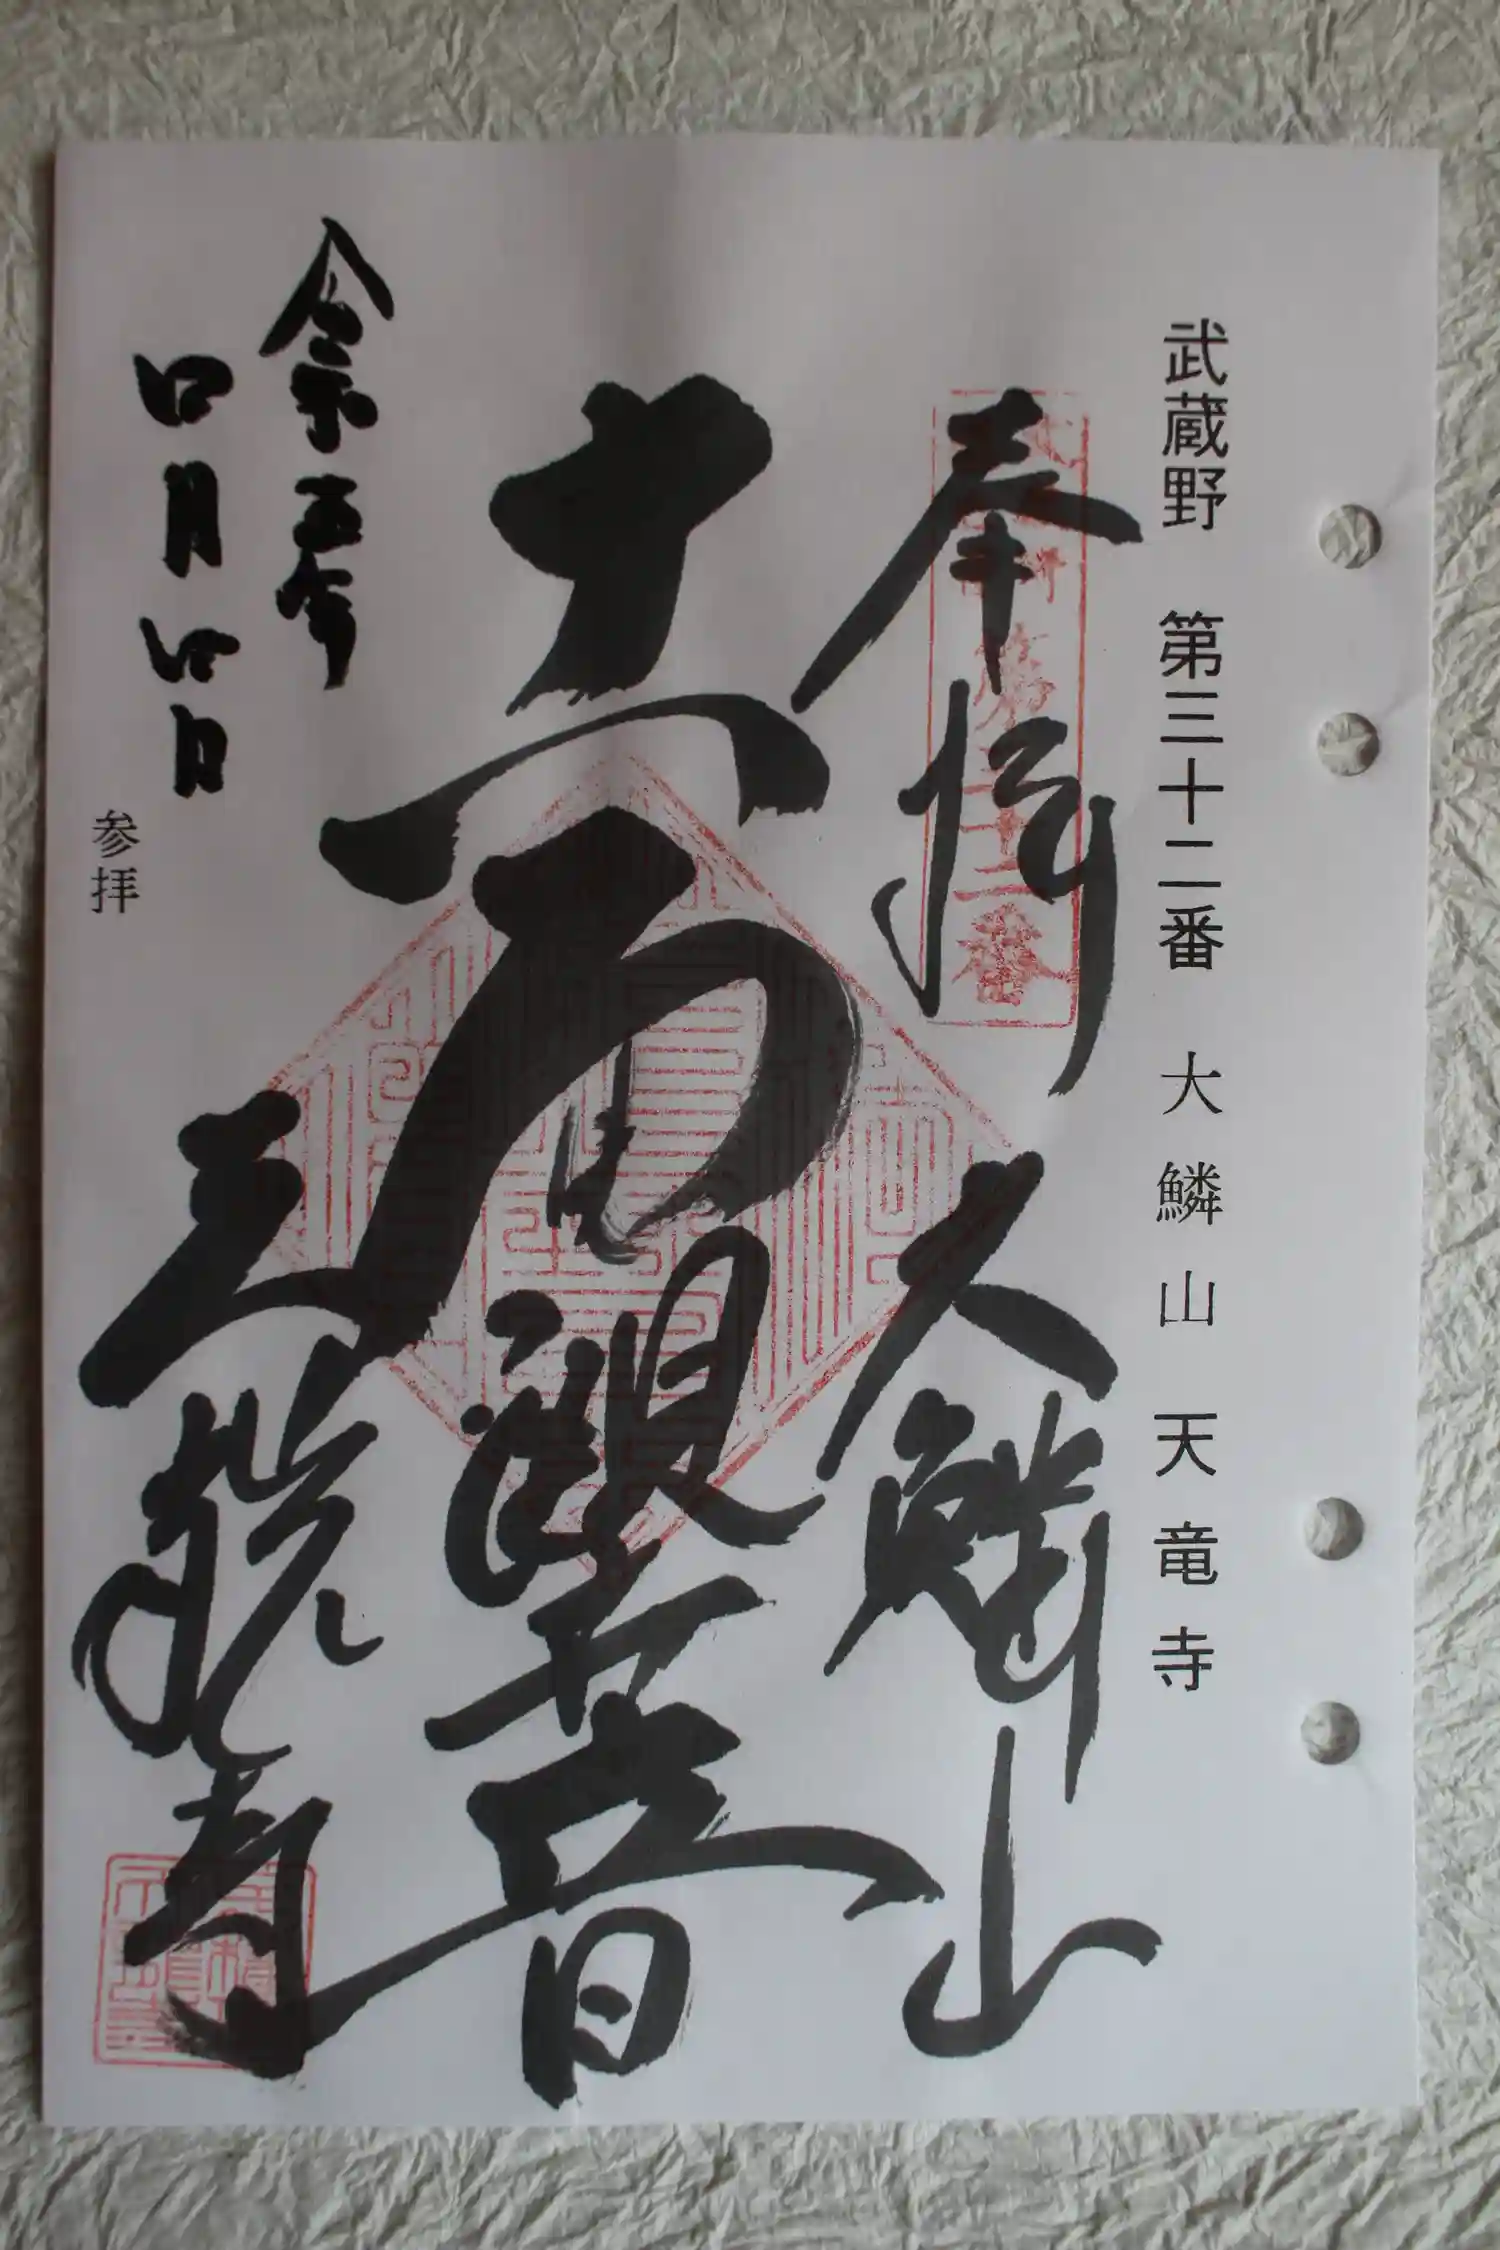 武蔵野 第三十二番 大鱗山 天竜寺
奉拝 大鱗山
第三十二番
十一面観世音
天龍寺
令和五年
四月四日
参拝